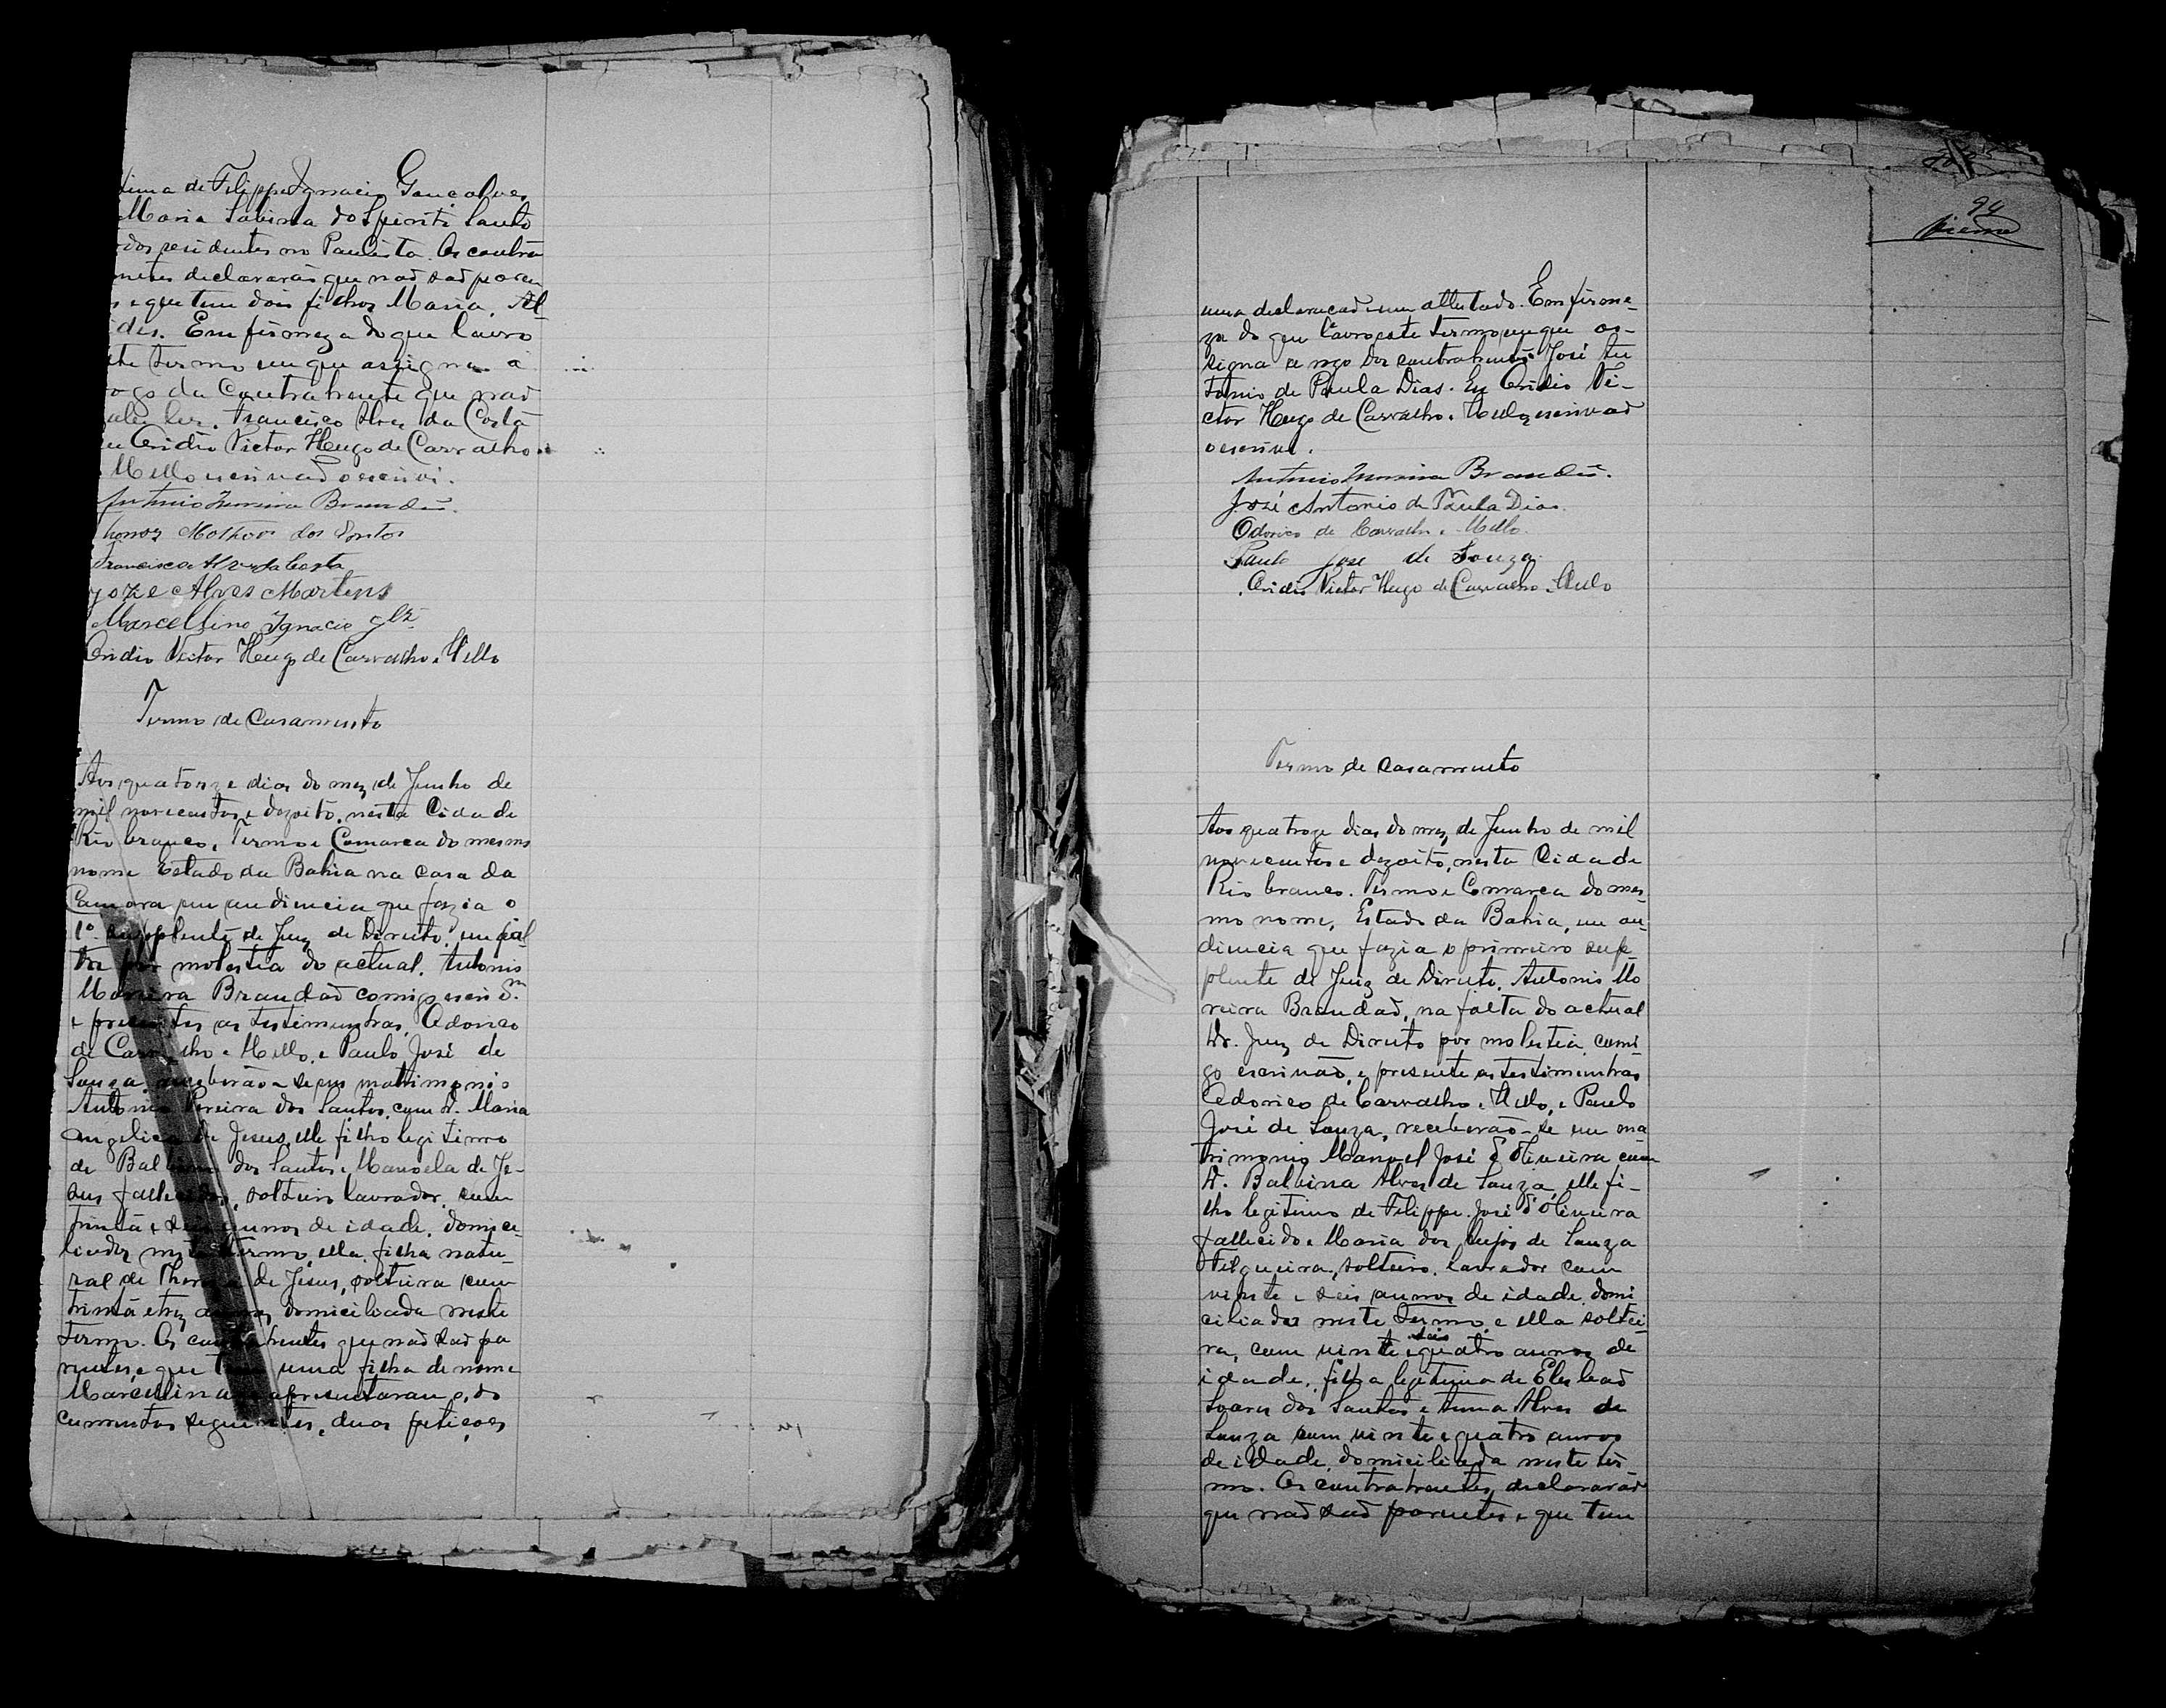 tima de Filippe Ignacio Gonçalves
Maria Sabina do Spirito Santo
dos residentes no Paulista. Os contra
que tem dois filhos Maria, Al
des. Em firmeza do que lavro
te termo em que assigna a
ogo da Contrahente que nao
ler. Francisco Alves da Costa
Victor Hugo de Carvalho e
Mello escrivao o escrivi.
Antonio Moreira Brandão.
Mathos dos Santos
Francisco Alves da Costa
Joze Alves Martens
Marcellino Ignacio Glz
Victor Hugo de Carvalho e Mello
Termo de Casamento
Aos quatorze dias do mez de Junho de
mil novecentos e dezoito, nesta Cidade
Rio branco, Termo e Comarca do mesmo
nome Estado da Bahia na casa da
Camara em audiencia que fazia o
1º supplente de Juiz de Direito, em fal
ta por molestia do actual, Antonio
Moreira Brandaõ comigo escriv
e presentes as testimunhas, Odorico
de Carvalho e Mello, e Paulo José de
Souza, receberão-se em matrimonio
Antonio Pereira dos Santos, com D. Maria
Angelica de Jesus, elle filho legitimo
de dos Santos e Manoela de Je-
sus fallecidos, solteiro lavrador, com
trinta e annos de idade, domici-
liado neste termo, ella filha natu-
ral de de Jesus, solteira com
trinta e trez annos domiciliada neste
termo. Os contrahentes que naõ saõ pa
rentes, e que tem uma filha de nome
Marculina apresentaram os do
cumentos seguintes, duas petiçoes
94
uma declaracaõ e um attestado. Em firme-
za do que lavro este termo em que as-
signa a rogo dos contrahentes José An
tonio de Paula Dias. Eu Vi-
ctor Hugo de Carvalho e Mello escrivaõ
o escrivi.
Antonio Moreira Brandão.
José Antonio de Paula Dias.
Odorico de Carvalho e Mello.
Paulo Jose de Souza.
Victor Hugo de Carvalho e Mello
Termo de casamento
Aos quatroze dias do mez de Junho de mil
novecentos e dezoito, nesta Cidade
Rio branco. Termo e Comarca do mes-
mo nome, Estado da Bahia, em au-
diencia que fazia o primeiro sup-
plente de Juiz de Direito, Antonio Mo
reira Brandaõ, na falta do actual
Dr. Juiz de Direito por molestia, comi-
go escrivão, e presente as testimunhas
Odorico de Carvalho e Mello, e Paulo
José de Souza, receberão-se em ma
trimonio Manoel José d'Oliveira com
D. Balbina Alves de Souza, elle fi-
lho legitimo de Filippe José d'Oliveira
fallecido e Maria dos Anjos de Souza
Filgueira, solteiro, lavrador com
vinte e seis annos de idade, domi
ciliados neste termo, e ella soltei-
ra, com vinte e seis quatro annos de
idade, filha legitima de Elesbaõ
Soares dos Santos e Anna Alves de
Souza com vinte e quatro annos
de idade, domiciliada neste ter
mo. Os contrahentes, declararaõ
que naõ saõ parentes e que tem